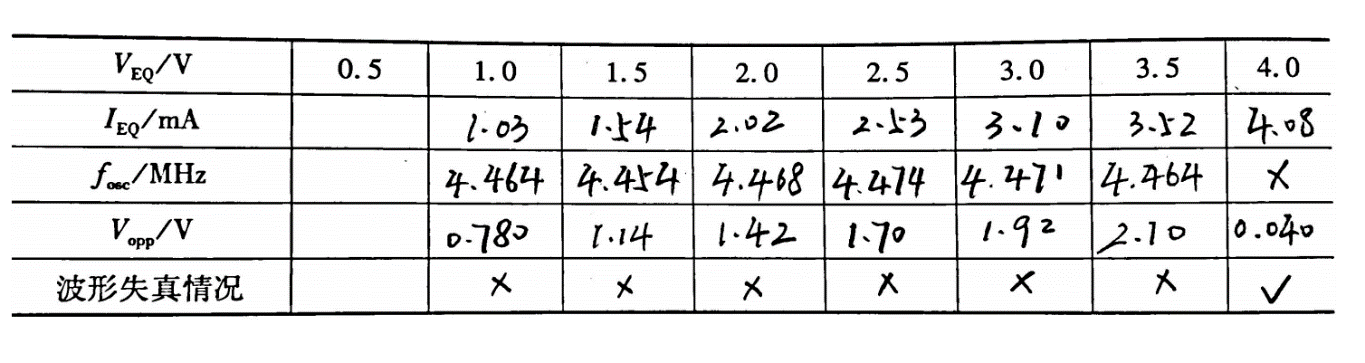 V_EQ/V 0.5 1.0 1.5 2.0 2.5 3.0 3.5 4.0
I_EQ/mA 1.03 1.54 2.02 2.53 3.10 3.52 4.08
f_osc/MHz 4.464 4.454 4.468 4.474 4.471 4.464 ×
V_opp/V 0.780 1.14 1.42 1.70 1.92 2.10 0.040
波形失真情况 × × × × × × ✓